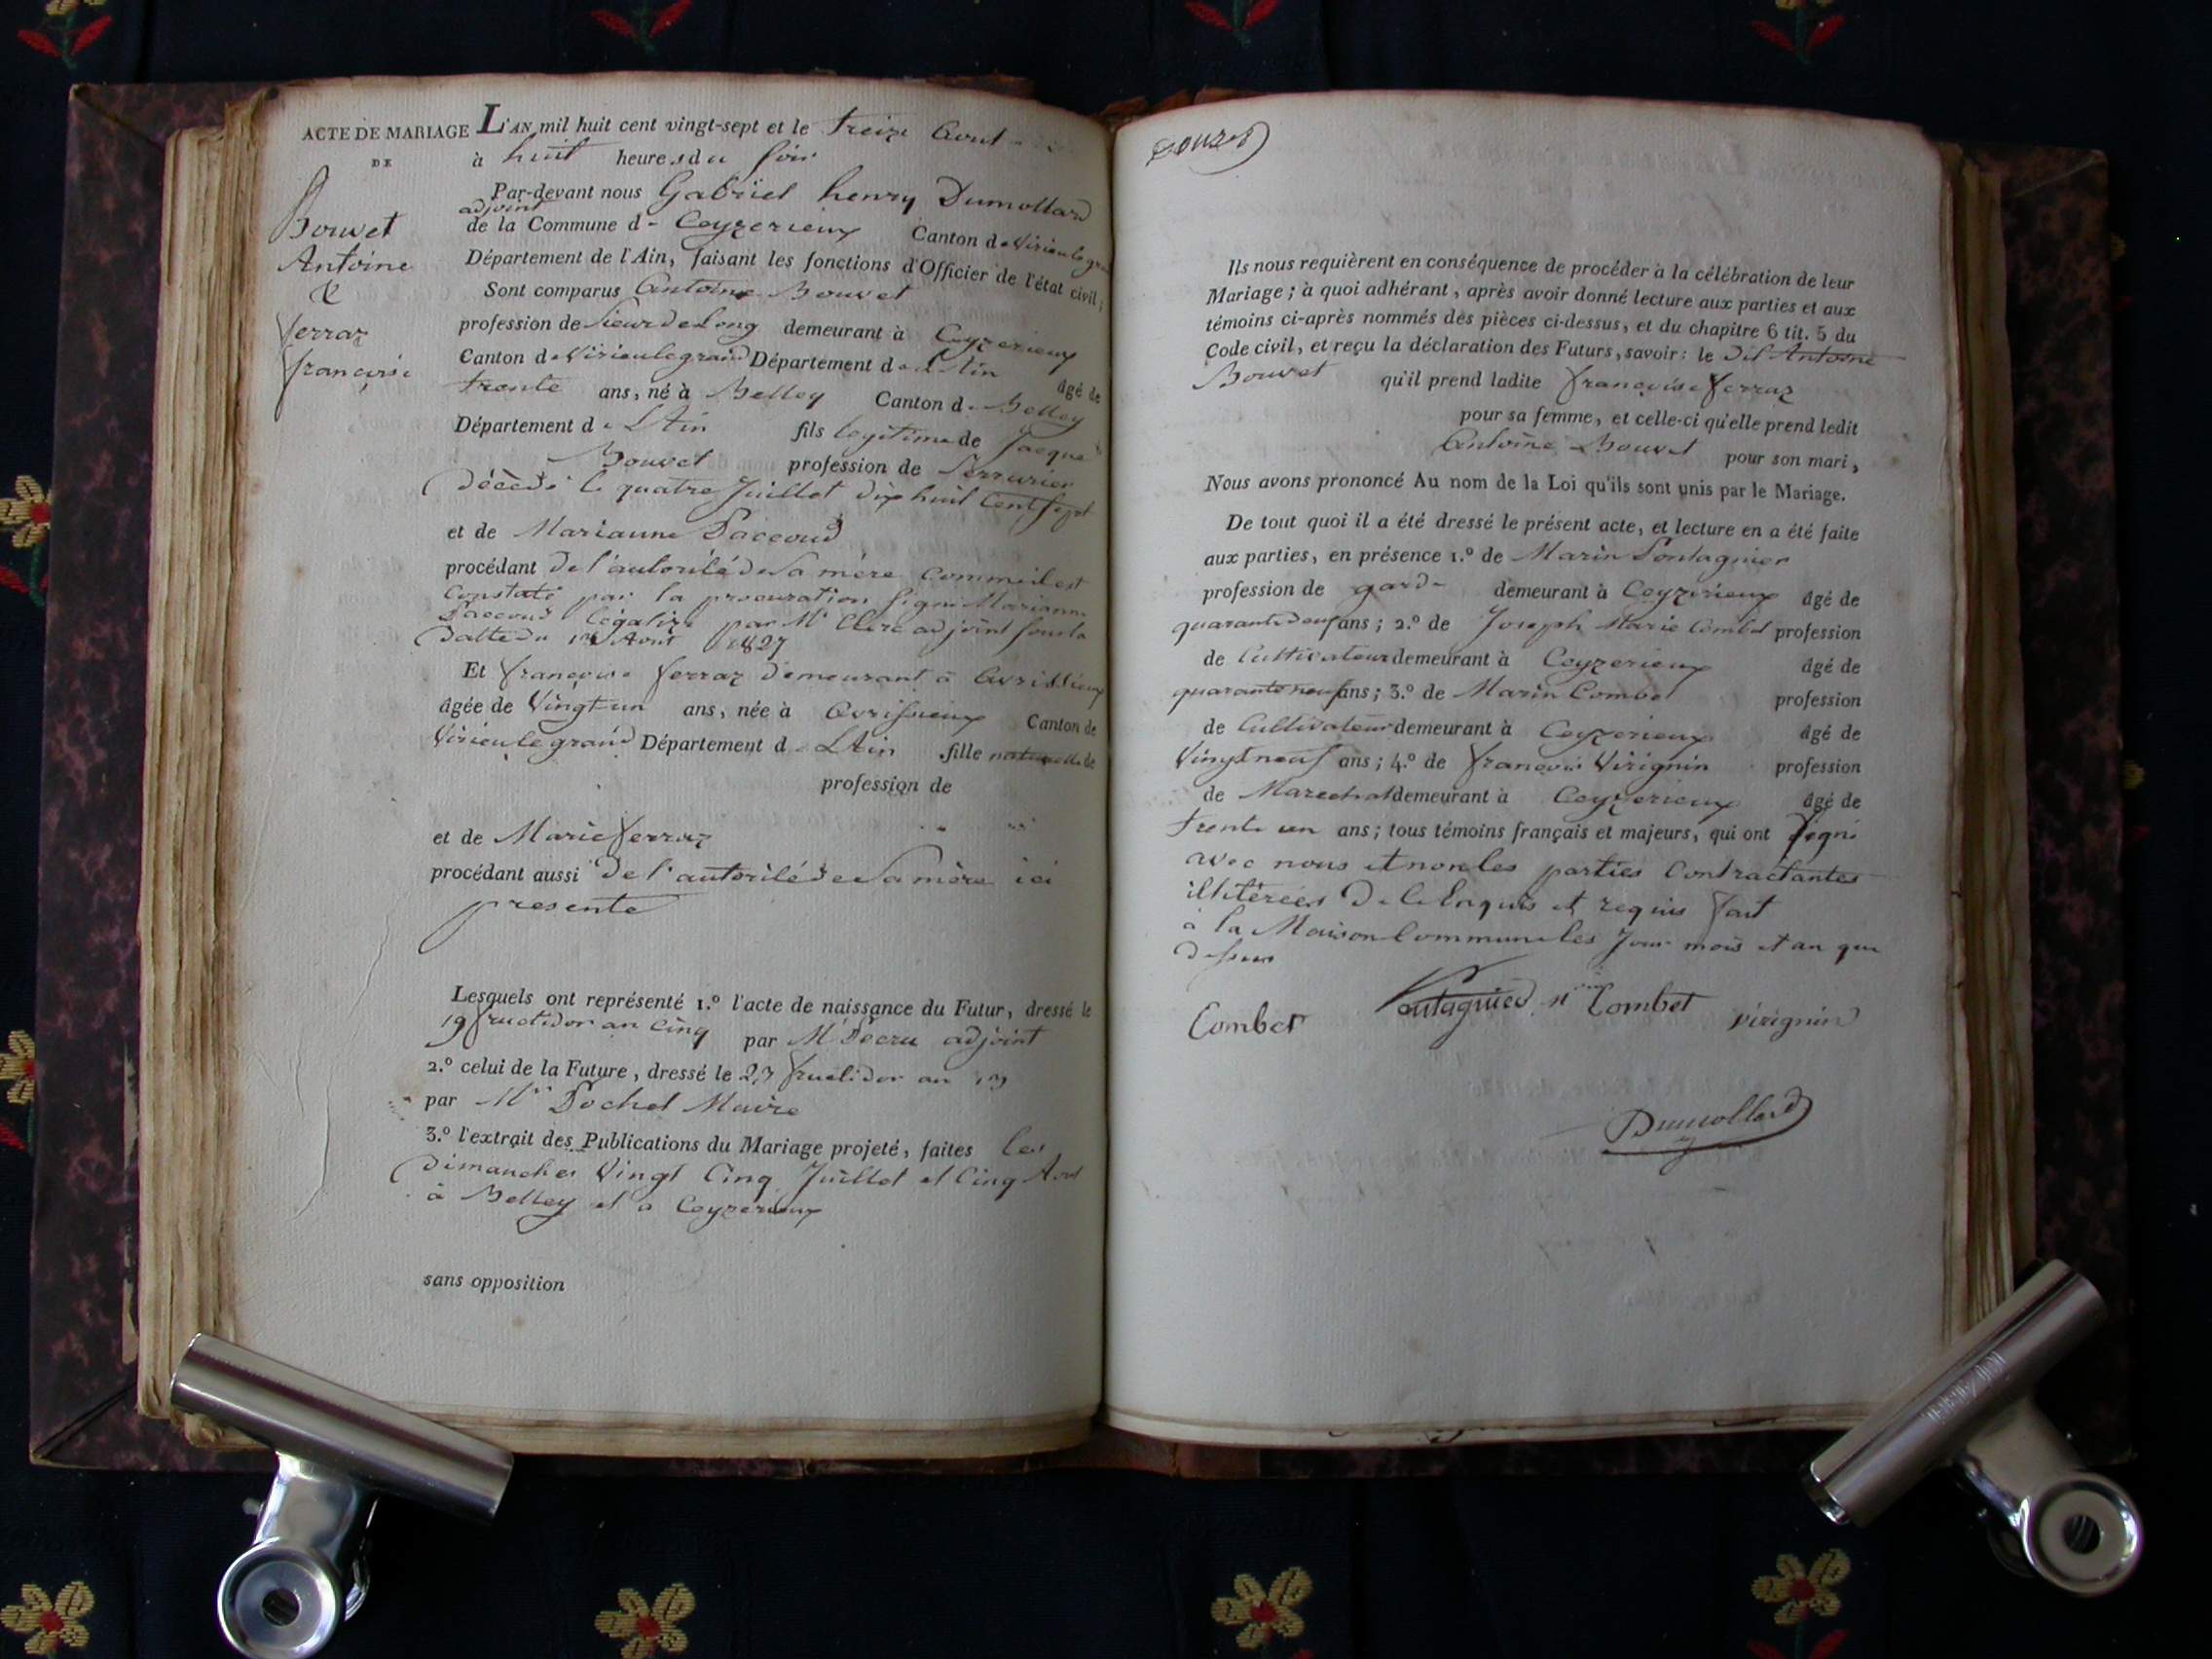 ACTE DE MARIAGE
DE
Bouvet
Antoine
&
ferraz
françoise
L'AN mil huit cent vingt-sept et le treize Aout
à huit heures du soir
Par-devant nous Gabriel henry Dumollard
adjoint
de la Commune de Ceyzerieux Canton de Virieulegrand
Département de l'Ain, faisant les fonctions d'Officier de l'état civil;
Sont comparus Antoine Bouvet
profession de Sieur de Long demeurant à Ceyzerieux
Canton de Virieulegrand Département de L'Ain âgé de
trente ans, né à Belley Canton de Belley
Département de LAin fils legitime de Jacque
Bouvet profession de Serrurier
décédé le quatre Juillet dix huit Cent sept
et de Marianne Paccoud
procédant de l'autorité de Sa mère comme il est
Constaté par la procuration signé Marianne
Paccoud légalizé par Mr Clerc adjoint sous la
datte du Aout 1827
Et françoise ferraz demeurant à Avrissieux
âgée de Vingt un ans, née à Avrissieux Canton de
Virieu le grand Département de LAin fille naturelle de
profession de
et de Marie ferraz
procédant aussi de l'autorité de Sa mère ici
presente
Lesquels ont représenté 1.º l'acte de naissance du Futur, dressé le
19 fructidor an Cinq par Mr Decru adjoint
2.º celui de la Future, dressé le 23 fructidor an 13
par Mr Pochet Maire
3.º l'extrait des Publications du Mariage projeté, faites les
dimanches Vingt Cinq Juillet et Cinq Aout
à Belley et a Ceyzerieux
sans opposition
Ils nous requièrent en conséquence de procéder à la célébration de leur
Mariage; à quoi adhérant, après avoir donné lecture aux parties et aux
témoins ci-après nommés des pièces ci-dessus, et du chapitre 6 tit. 5 du
Code civil, et reçu la déclaration des Futurs, savoir: le dit Antoine
Bouvet qu'il prend ladite françoise ferraz
pour sa femme, et celle-ci qu'elle prend ledit
Antoine Bouvet pour son mari,
Nous avons prononcé Au nom de la Loi qu'ils sont unis par le Mariage.
De tout quoi il a été dressé le présent acte, et lecture en a été faite
aux parties, en présence 1.º de Marin Pontagnier
profession de garde demeurant à Ceyzerieux âgé de
ans; 2.º de Joseph Marie Combet profession
de Cultivateur demeurant à Ceyzerieux âgé de
quarante neuf ans; 3.º de Marin Combet profession
de Cultivateur demeurant à Ceyzerieux âgé de
Vingt neuf ans; 4.º de françois Virignin profession
de Marechal demeurant à Ceyzerieux âgé de
trente un ans; tous témoins français et majeurs, qui ont signé
avec nous et non les parties Contractantes
illitérées de ce Enquis et requis fait
à la Maison Commune les Jour mois et an que
dessus
Combet Pontagnier Combet Virignin
Dumollard